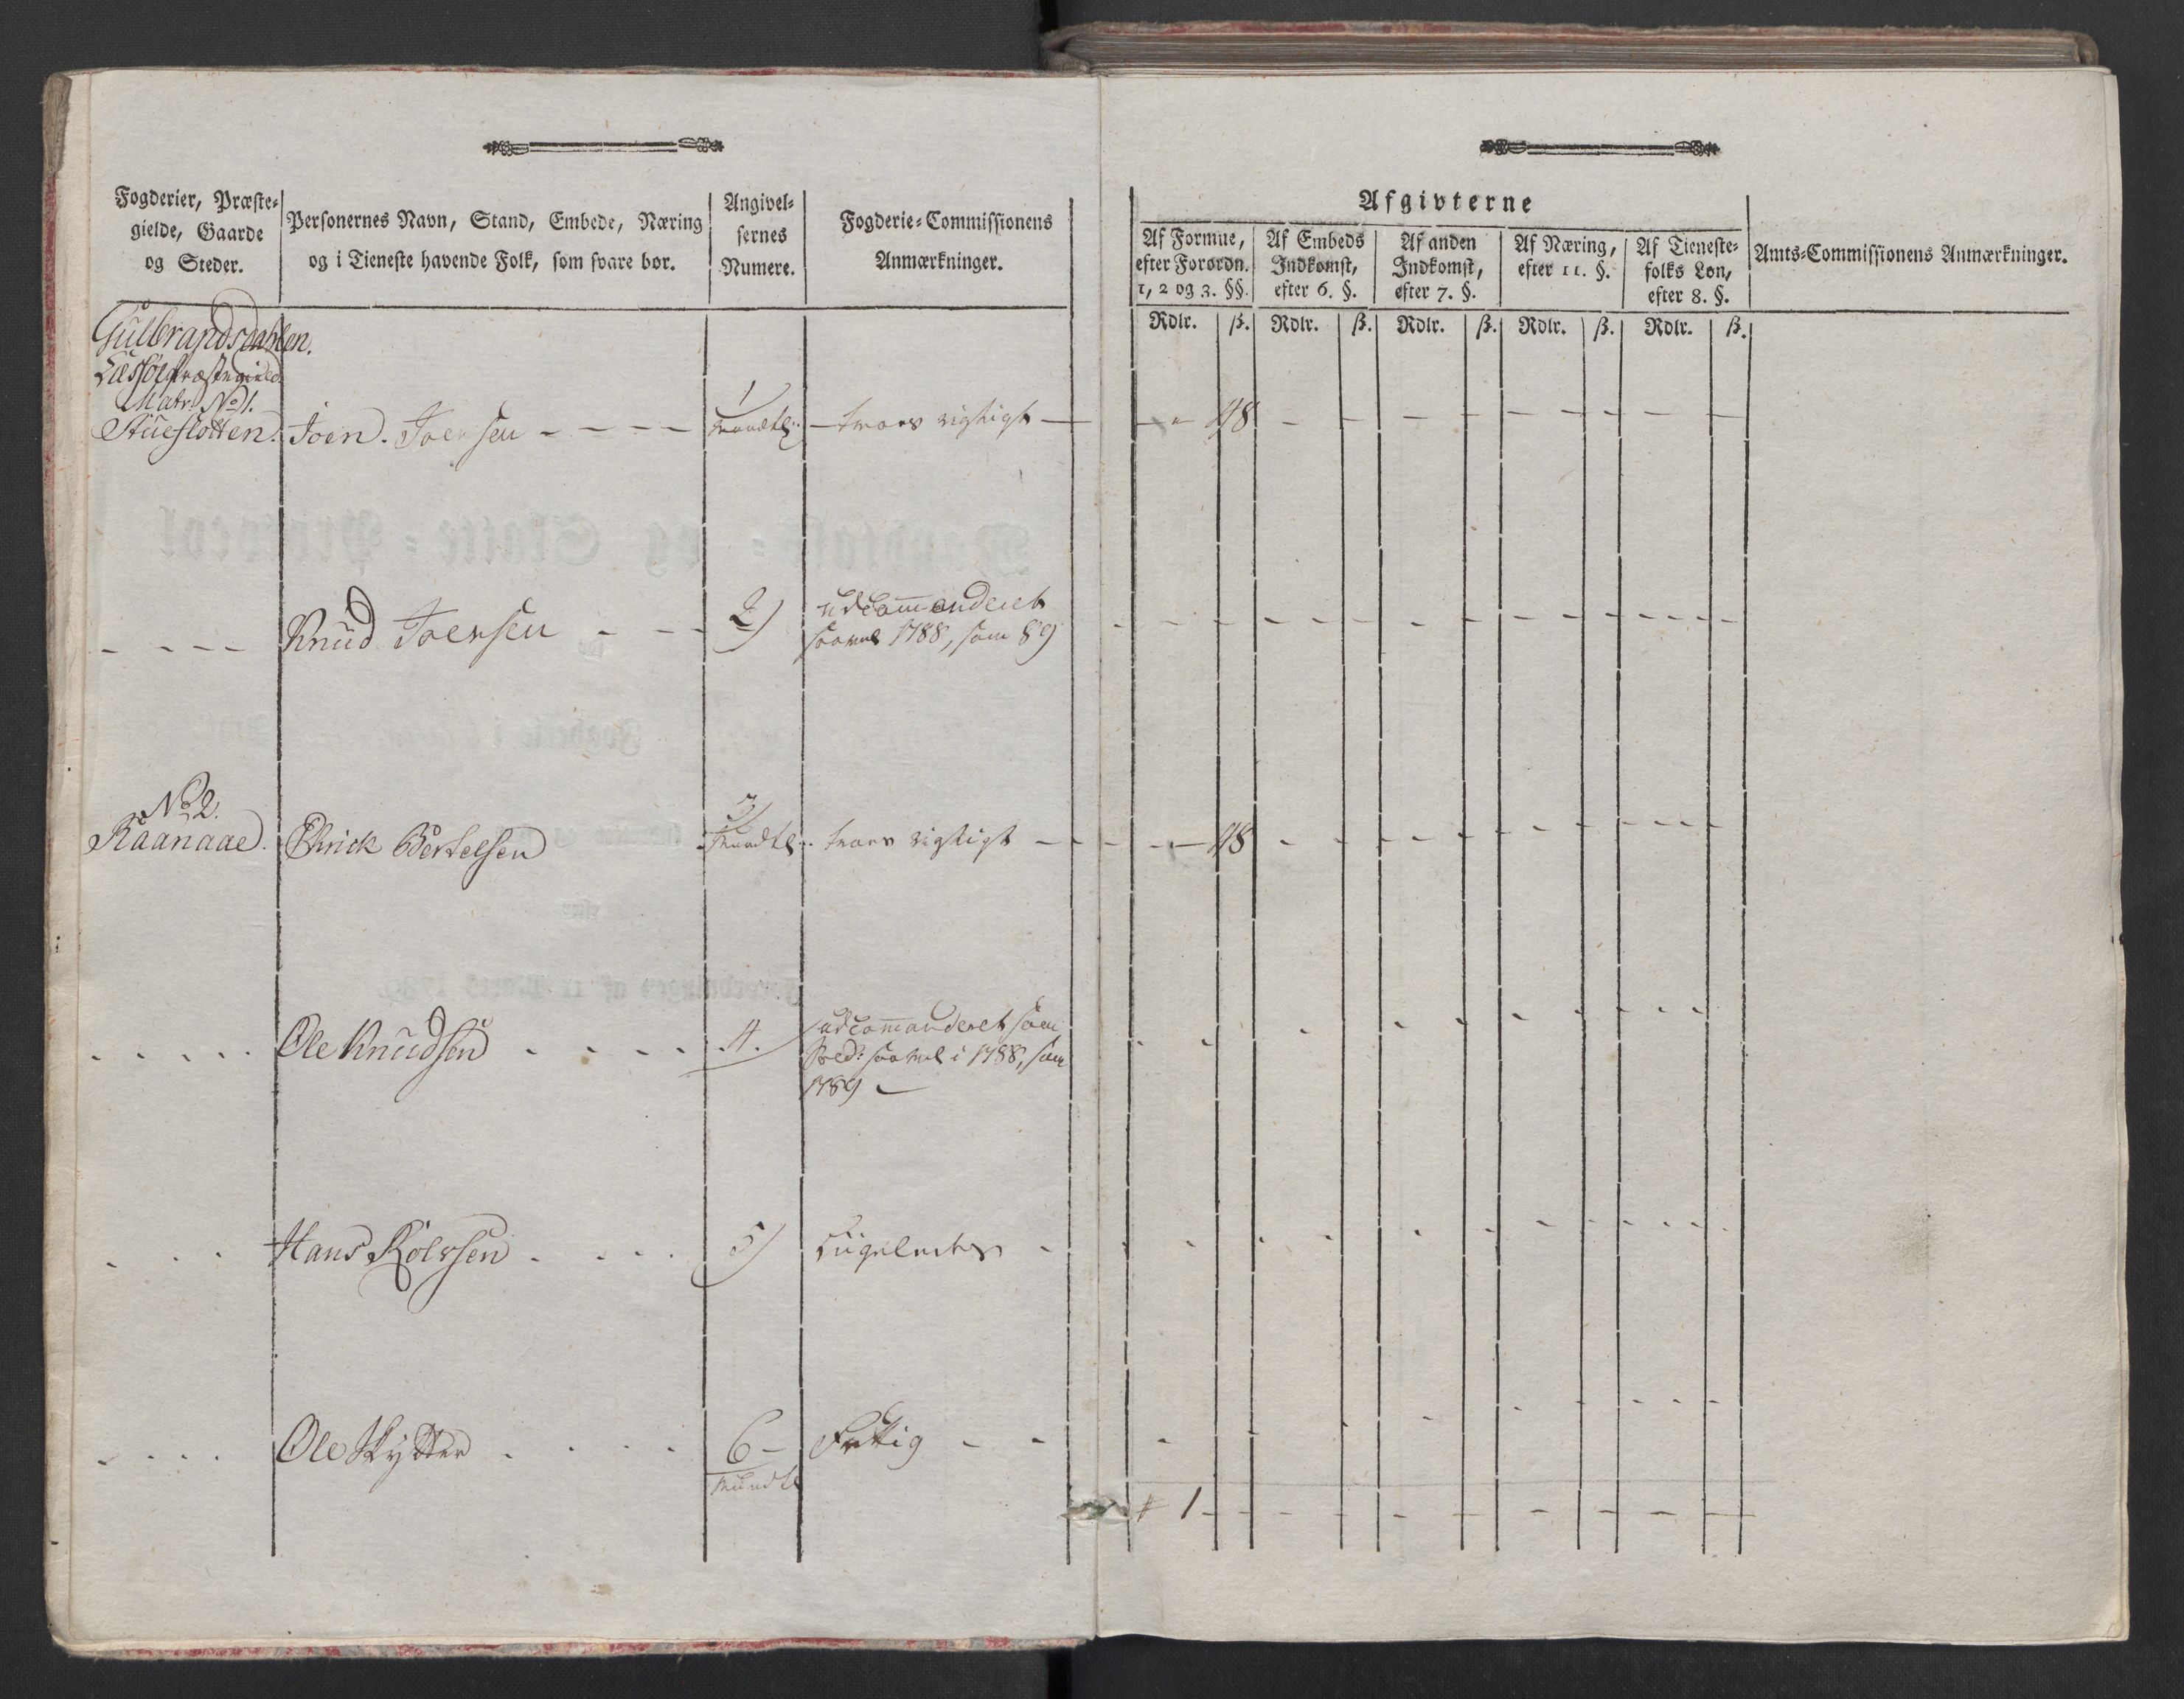 Fogderier, Præste-
gielde, Gaarde
og Steder.
Personernes Navn, Stand, Embede, Næring
og i Tieneste havende Folk, som svare bør.
Angivel-
sernes
Numere.
Fogderie-Commissionens
Anmærkninger.
Afgivterne
Af Formue,
efter Forordn.
1, 2 og 3. §§.
Af Embeds
Indkomst,
efter 6. §.
Af anden
Indkomst,
efter 7. §.
Af Næring,
efter 11. §.
Af Tieneste-
folks Løn,
efter 8. §.
Amts-Commissionens Anmærkninger.
Rdlr. ß. Rdlr. ß. Rdlr. ß. Rdlr. ß. Rdlr. ß.
Gulbrandsdahlen.
Præstegield
Matr. No 1.
Stueflotten. Joen. Joensen - - - - 1 mundtl: - svars rigtigt - - - 48 - - - - - - - -
- - - - Knud Joensen - - - 2) udcommanderet
saavel 1788, som 89
No 2.
Raanaae. Ehrick Bertelsen 3) mundtl: svars rigtigt - - - 48 - - - - - - - -
- - - - - Ole Knudsen - - - - 4. udcommanderet som
Sold: saavel i 1788, som
1789 -
- - - Hans Rolvsen - - - - 5)
- - - - Ole Skytter - - - - 6 - Fattig - -
mundtl
1 - - - - - - - - -